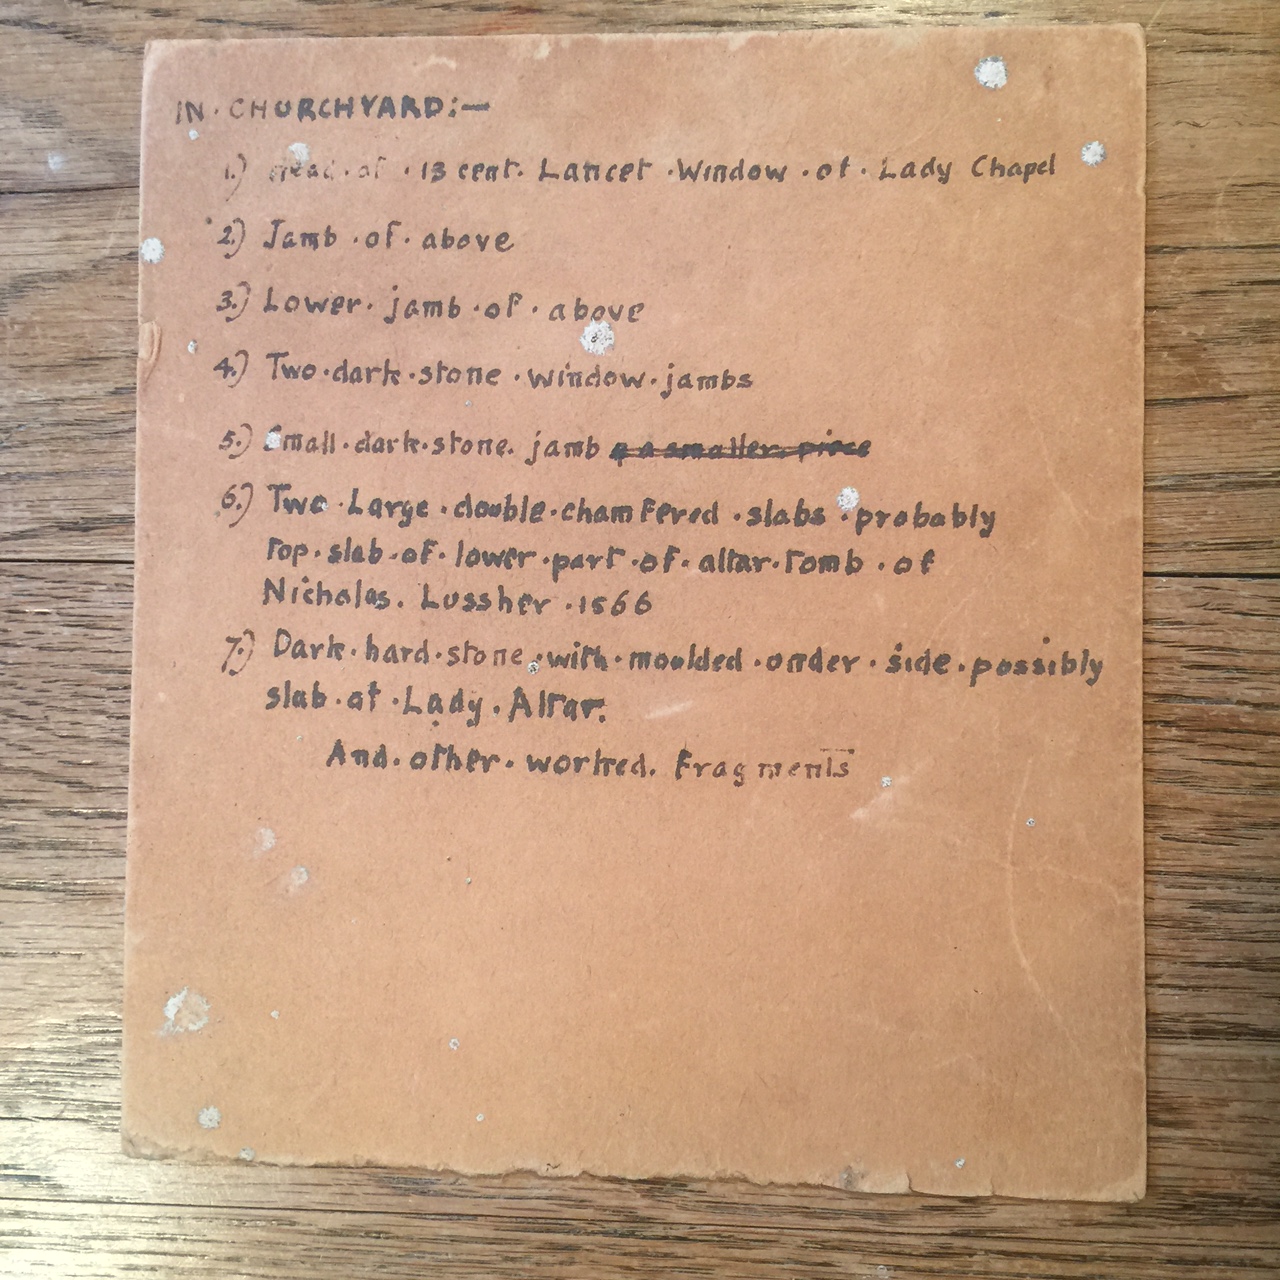 IN · CHURCHYARD:—
1.) Head · of · 13 cent. Lancet · Window · of · Lady Chapel
2.) Jamb · of · above
3.) Lower · jamb · of · above
4.) Two · dark · stone · window · jambs
5.) Small · dark · stone. jamb & a smaller. piece
6.) Two · Large · double · chamfered · slabs · probably
top · slab · of · lower · part · of · altar · tomb · of
Nicholas. Lussher · 1566
7.) Dark · hard · stone · with · moulded · under · side · possibly
slab · of · Lady · Altar.
And · other · worked. Fragments